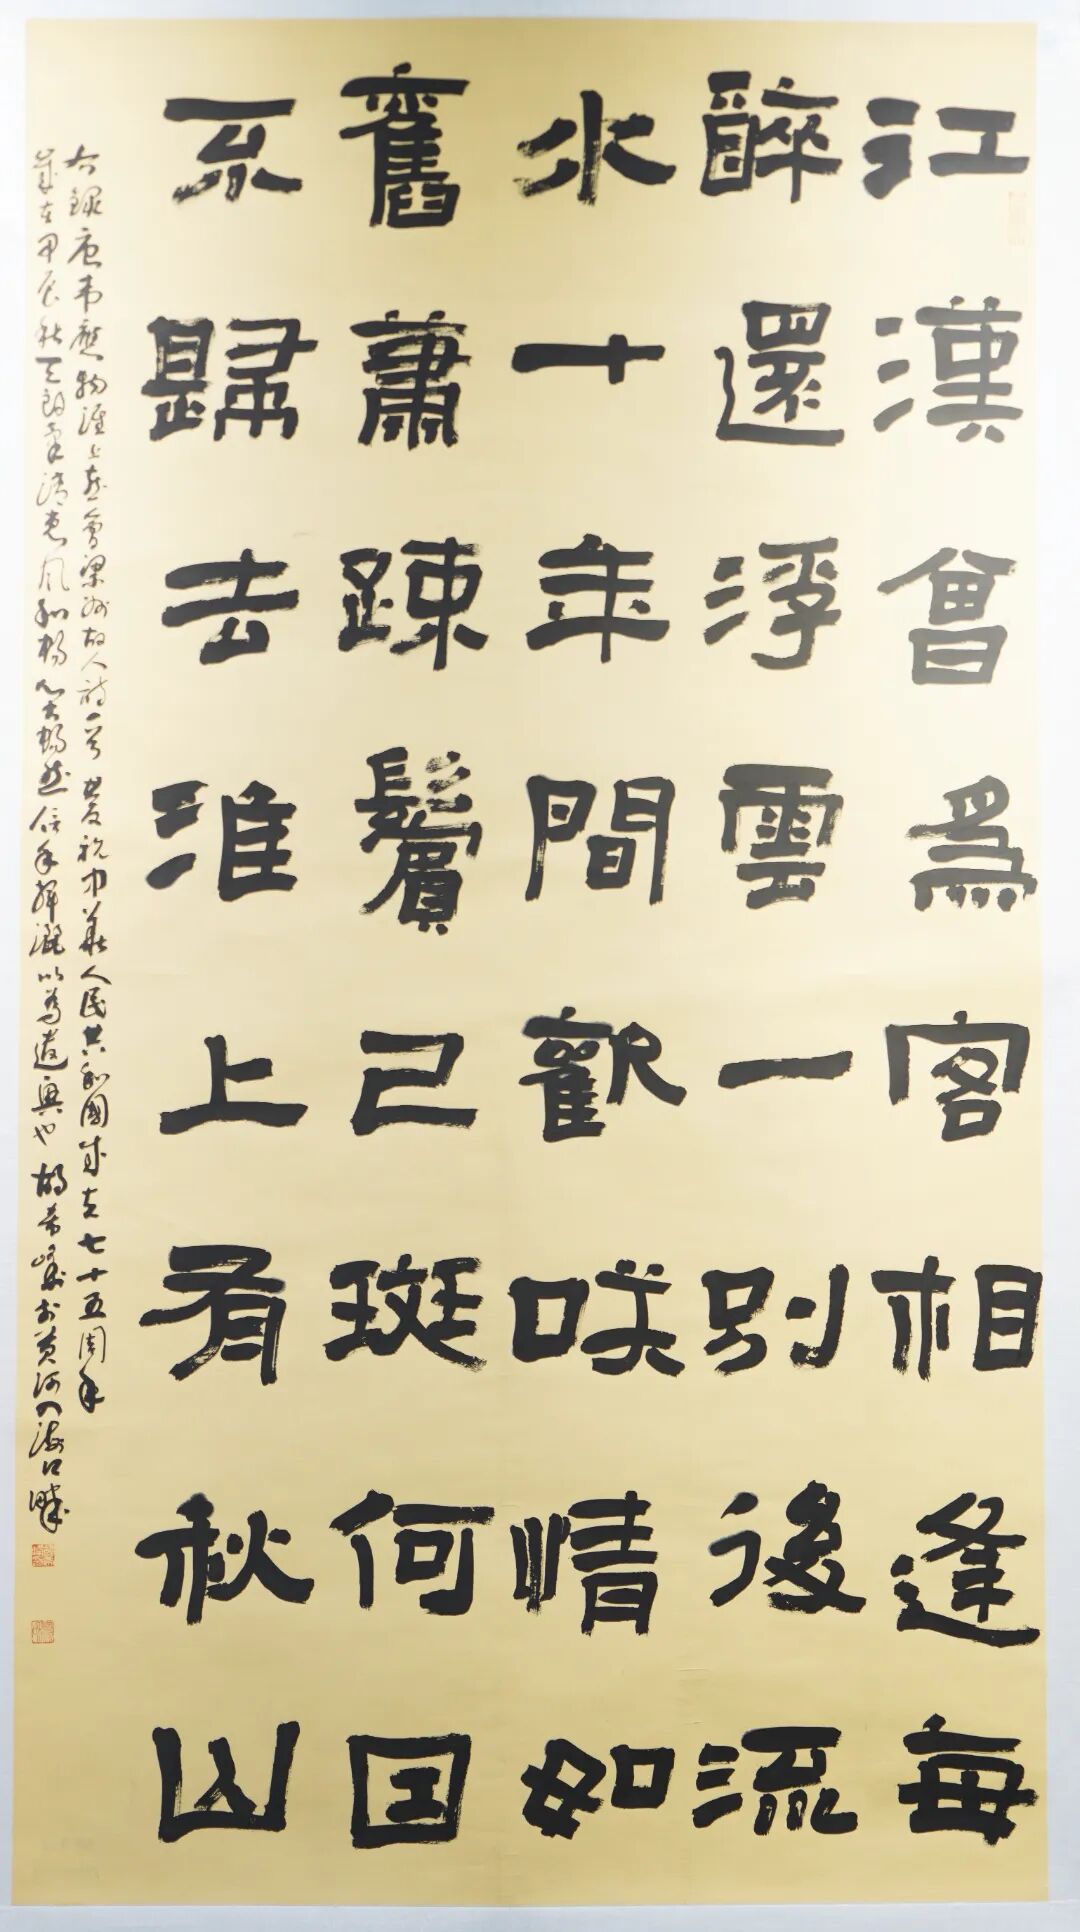 江漢曾爲客相逢每
醉還浮雲一別後流
水十年間歡咲情如
舊蕭疎鬢已斑何因
不歸去淮上有秋山
右錄唐韋應物淮上喜會梁州故人詩一首慶祝中華人民共和國成立七十五周年
歲在甲辰秋天朗氣清惠風和暢心暢然信手揮灑以為遣興也於黃河入海口畔